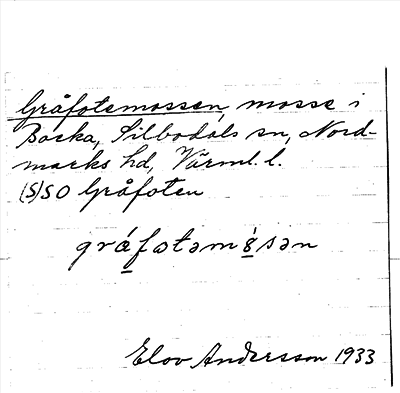 Gråfotemossen, mosse i
Backa, Silbodals sn, Nord-
marks hd, Värml. l.
(S)SO Gråfoten
gráfotəmòsən
Elov Andersson 1933